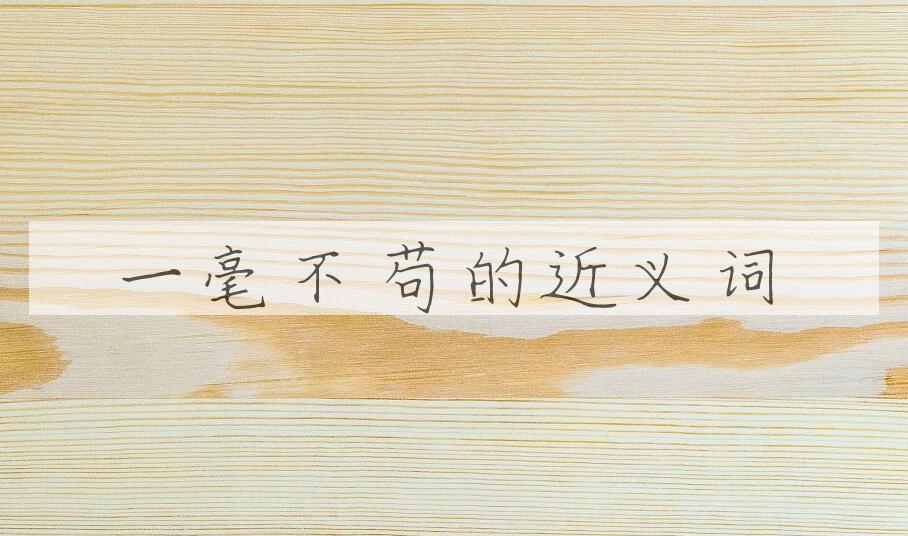 一毫不苟的近义词